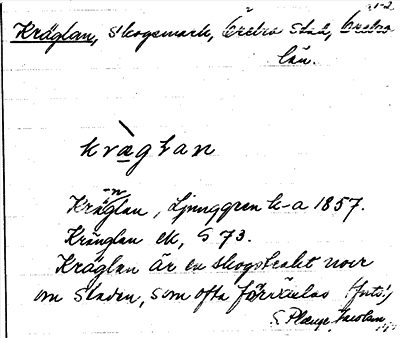 Kräglan, skogsmark, Örebro stad, Örebro
län.
kràglan
Kräglan, Ljunggren k-a 1857.
Kränglan ek, S 73.
Kräglan är en skogstrakt norr
om staden, som ofta förväxlas